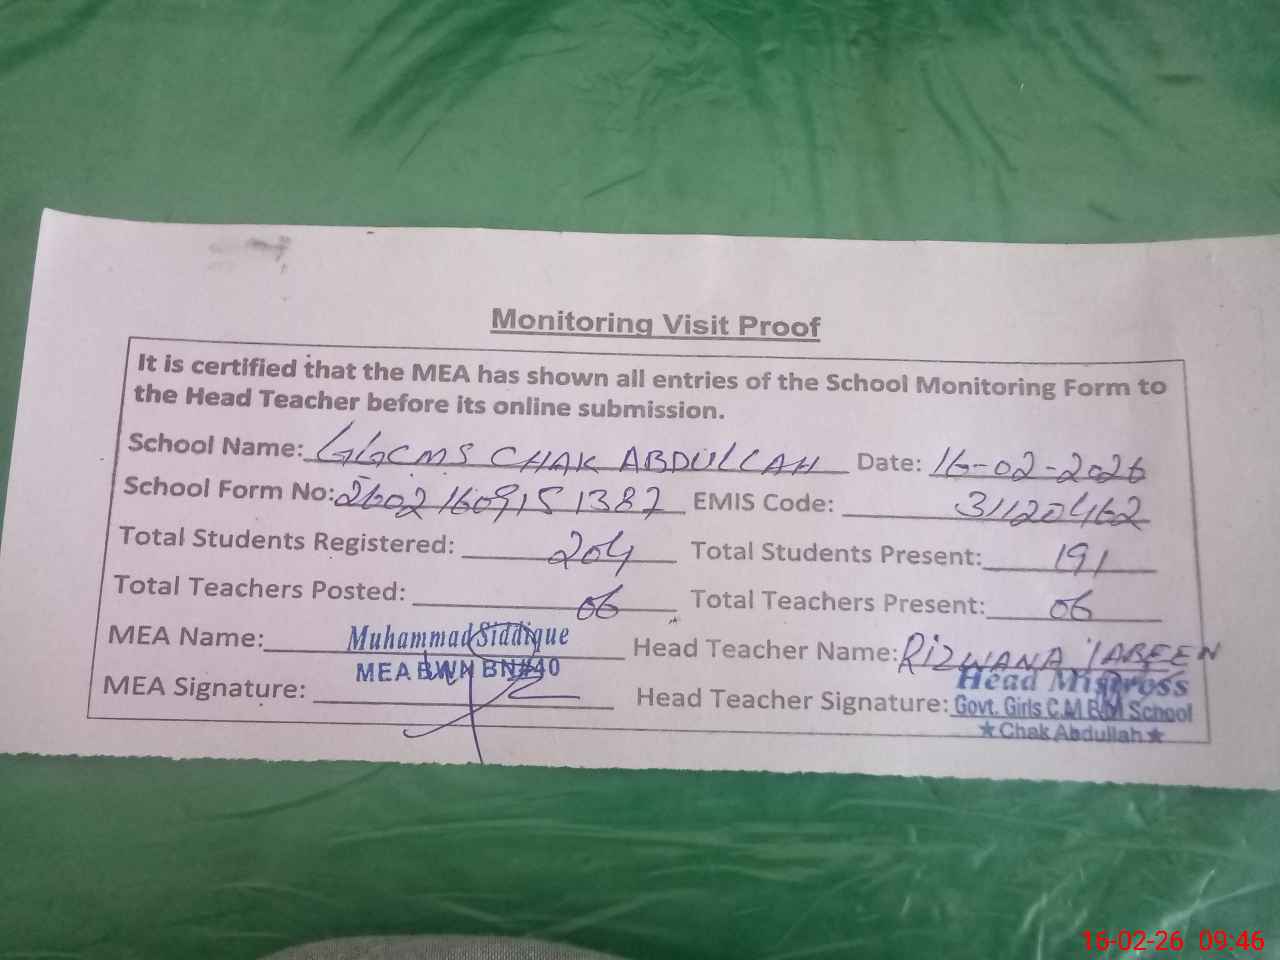 Monitoring Visit Proof
It is certified that the MEA has shown all entries of the School Monitoring Form to
the Head Teacher before its online submission.
School Name: GGCMS CHAK ABDULLAH Date: 16-02-2026
School Form No: 26021609151387 EMIS Code: 31120462
Total Students Registered: 204 Total Students Present: 191
Total Teachers Posted: 06 Total Teachers Present: 06
MEA Name: Muhammad Siddique Head Teacher Name: RIZWANA
MEA BWN BN#40
MEA Signature: Head Teacher Signature:
Head Mistross
Govt. Girls C.M School
★Chak Abdullah★
16-02-26 09:46